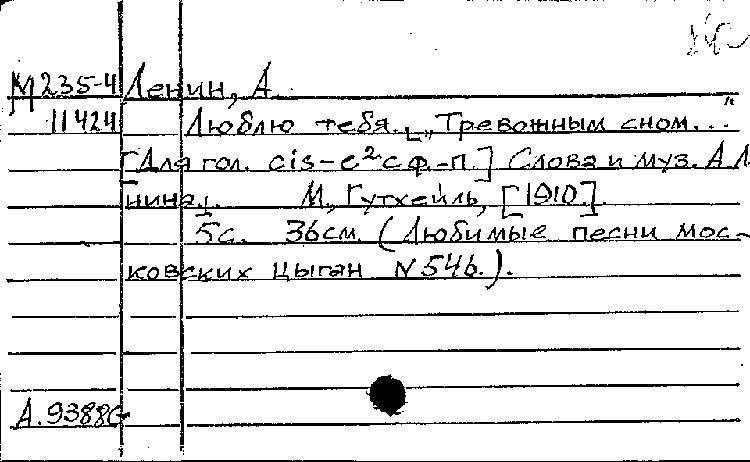 М 235-4 Ленин, А.
11424 Люблю тебя. „Тревожным сном..."
[Для гол. cis-e² с ф.-п.] Слова и муз. А Л
нина. М., Гутхейль, [1910].
5с. 36см. (Любимые песни мос-
ковских цыган N 546.).
А.9388